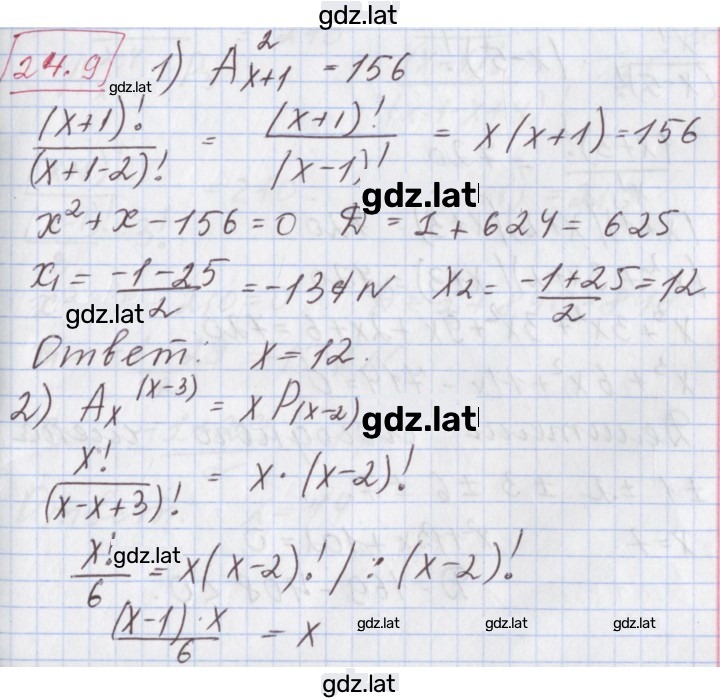 gdz.lat
24.9 1) A²ₓ₊₁ = 156
gdz.lat
(x+1)! / (x+1-2)! = (x+1)! / (x-1)! = x(x+1) = 156
gdz.lat
x² + x - 156 = 0 D = 1 + 624 = 625
x₁ = (-1-25)/2 = -13 ∉ N x₂ = (-1+25)/2 = 12
gdz.lat
Ответ: x = 12.
2) Aₓ^(x-3) = x P₍ₓ₋₂₎
gdz.lat
x! / (x-x+3)! = x · (x-2)!
gdz.lat
x!/6 = x(x-2)! / : (x-2)!
(x-1)·x / 6 = x
gdz.lat gdz.lat gdz.lat
gdz.lat